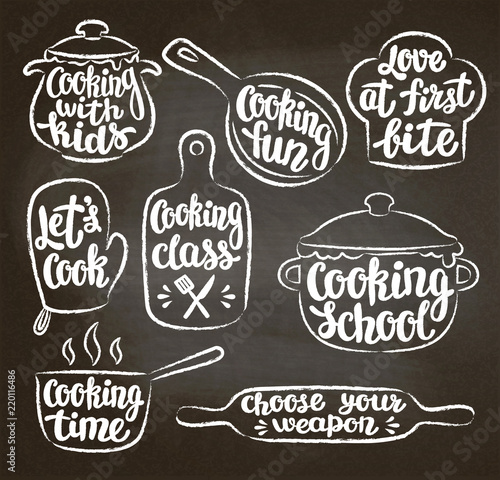 Cooking
with
kids
Cooking
fun
Love
at first
bite
Let's
Cook
Cooking
class
Cooking
School
Cooking
time
choose your
weapon
Adobe Stock | #220116486